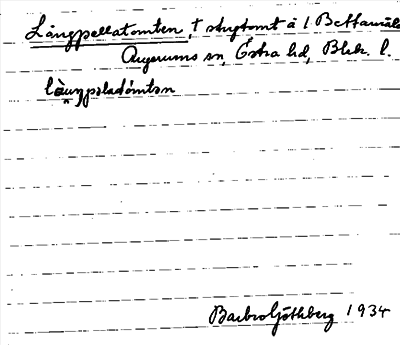 Långpellatomten, † skytomt å 1 Bettamåla
Augerums sn, Östra hd, Blek. l.
lå̀ŋpeladómten
Barbro Göthberg 1934